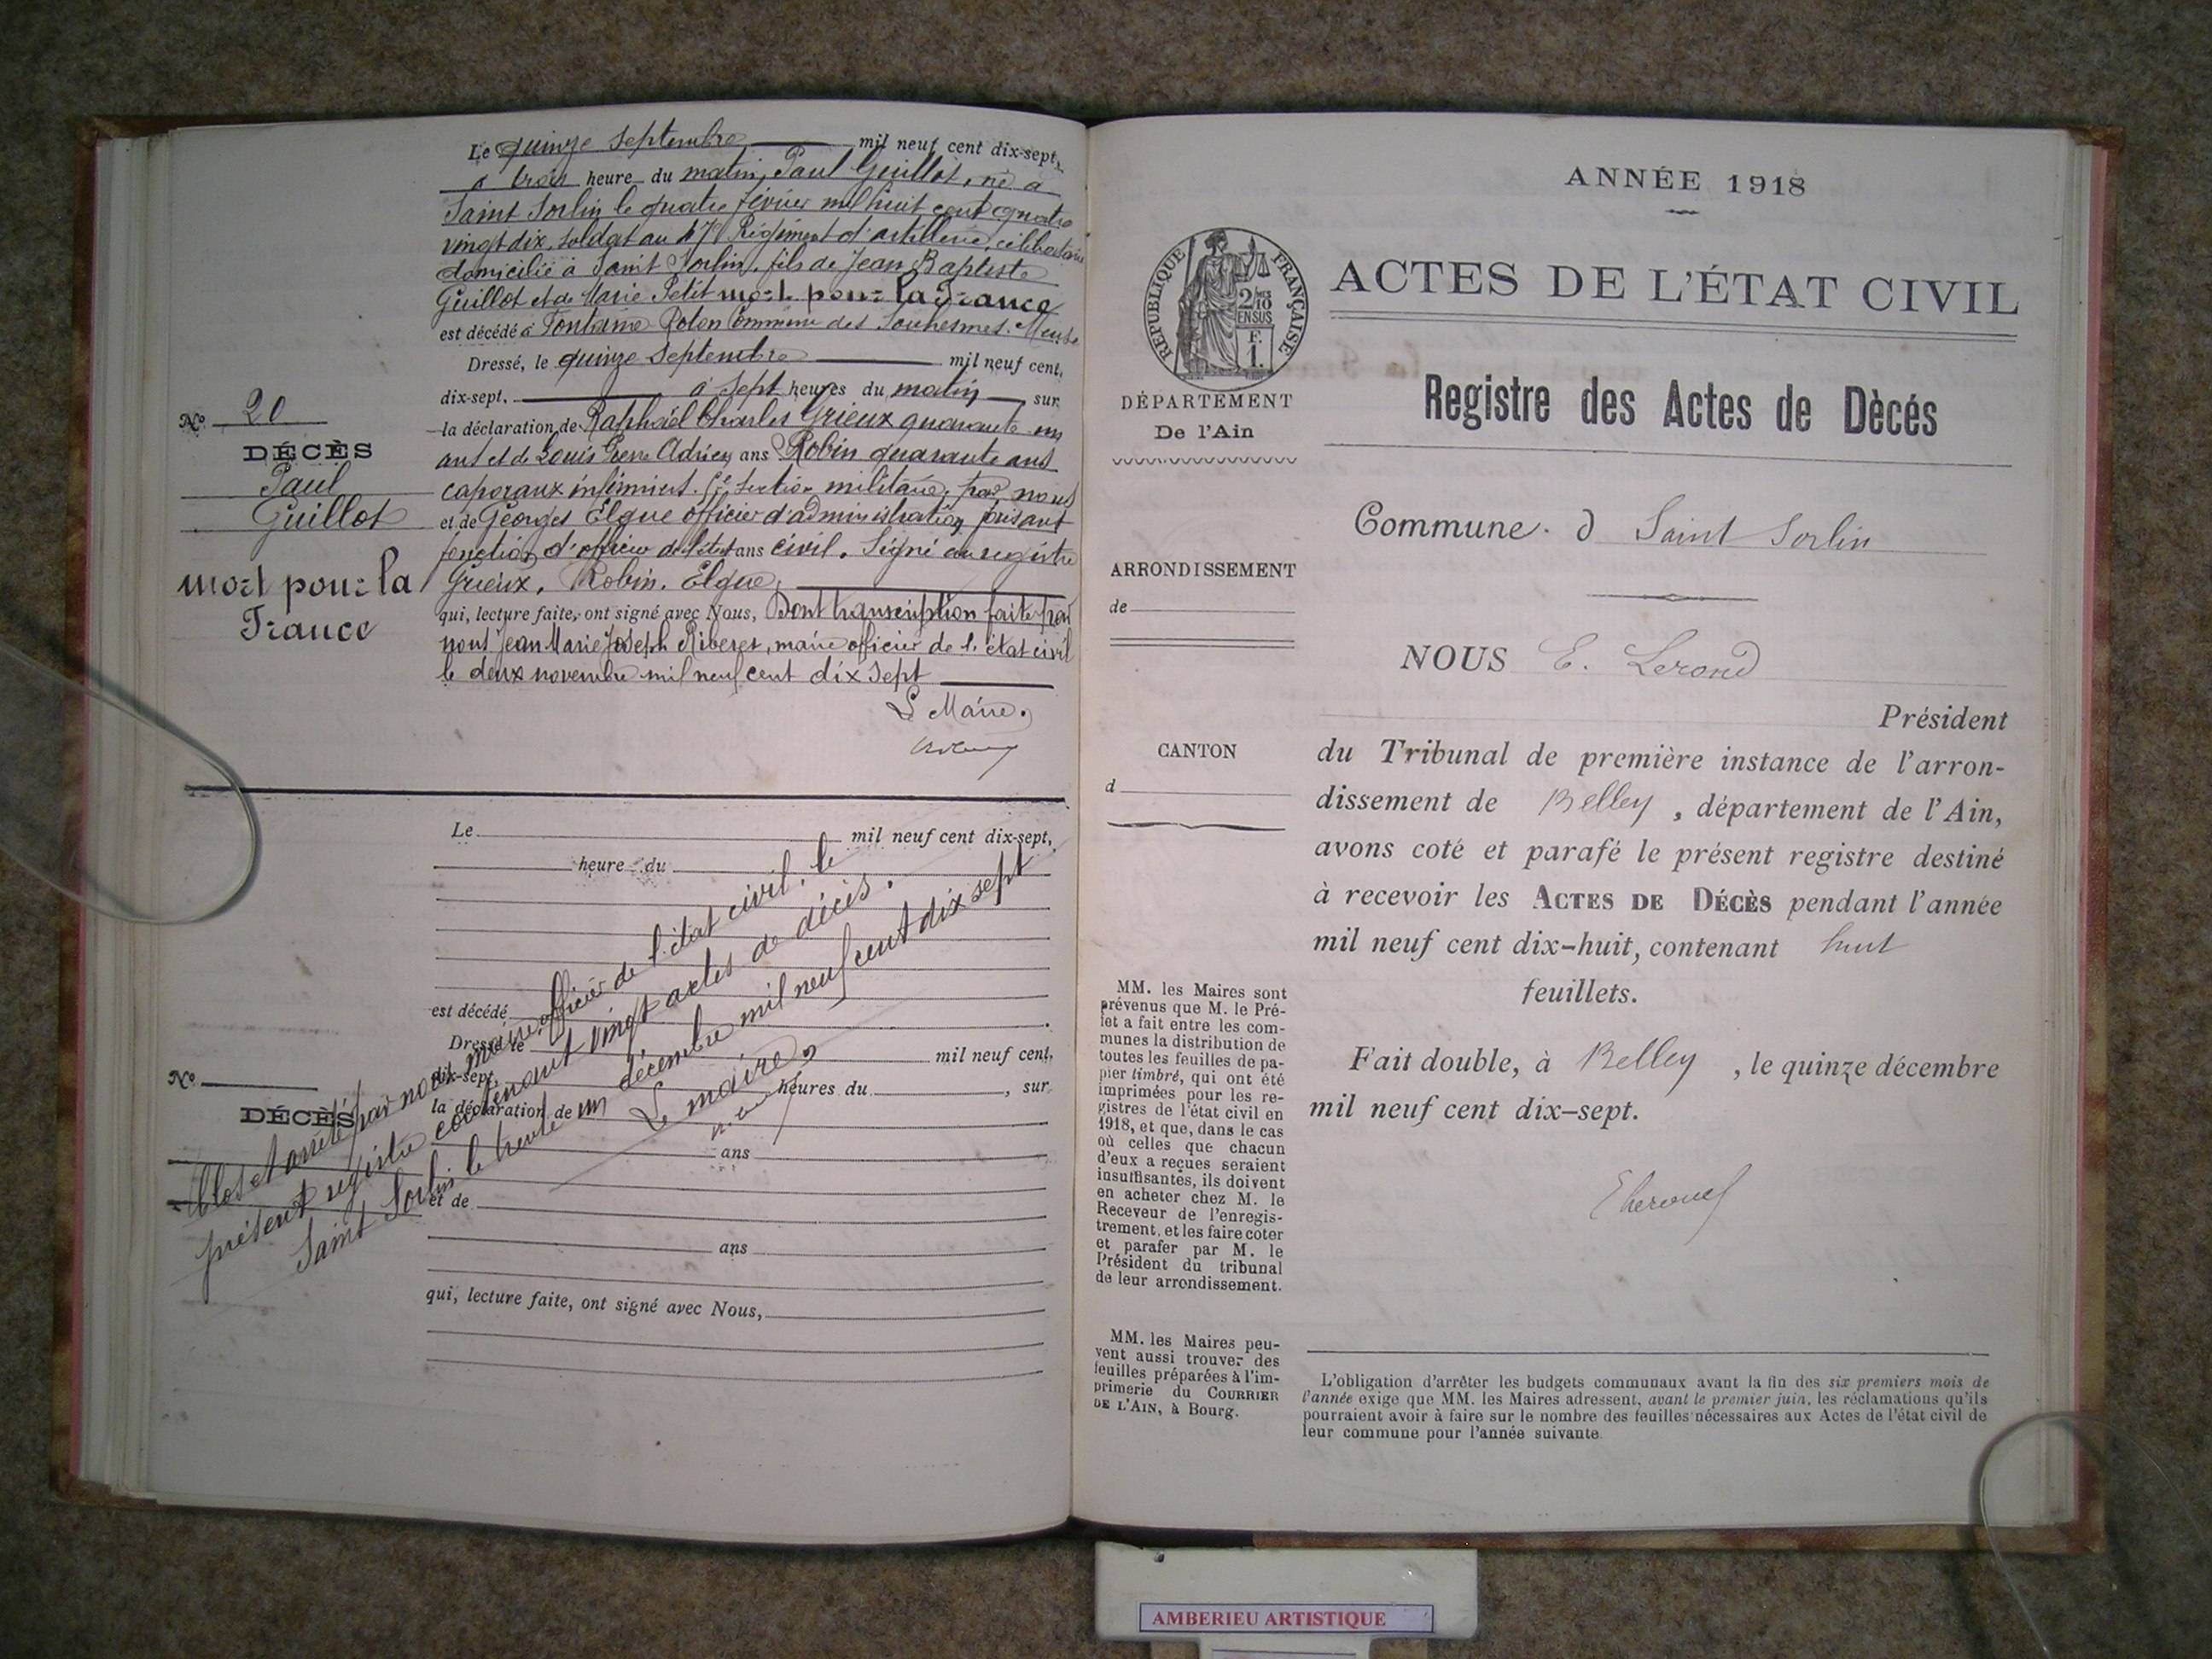 Le quinze Septembre mil neuf cent dix-sept,
à trois heure du matin, Paul Guillot, né à
Saint Sorlin le quatre février mil huit cent quatre
vingt dix, soldat au 47e Régiment d'artillerie, célibataire
domicilié à Saint Sorlin, fils de Jean Baptiste
Guillot et de Marie Petit mort pour la France
est décédé à Fontaine Commune des Souhesmes. Meuse
Dressé, le quinze Septembre mil neuf cent,
dix-sept, à sept heures du matin sur
la déclaration de Raphaël Charles Grieux quarante un
ans et de Louis Pierre Adrien ans Robin quarante ans
caporaux infirmiers. section militaire, par nous
et de Georges Elque officier d'administration faisant
fonction d'officier de l'état ans civil. Signé au registre
Grieux, Robin, Elque,
qui, lecture faite, ont signé avec Nous, Dont transcription faite par
nous Jean Marie Joseph Riberet, maire officier de l'état civil
le deux novembre mil neuf cent dix sept
Le Maire.
No 20
DÉCÈS
Paul
Guillot
mort pour la
France
Le mil neuf cent dix-sept,
heure du
est décédé
Dressé le mil neuf cent,
dix-sept, heures du , sur
la déclaration de
ans
et de
ans
qui, lecture faite, ont signé avec Nous,
No
DÉCÈS
Clos et arrêté par nous maire, officier de l'état civil, le
présent registre contenant vingt actes de décès.
Saint Sorlin le trente un décembre mil neuf cent dix sept
Le maire,
ANNÉE 1918
ACTES DE L'ÉTAT CIVIL
REPUBLIQUE FRANÇAISE
2/10
EN SUS
F.
1.
DÉPARTEMENT
De l'Ain
Registre des Actes de Dècés
Commune. d Saint Sorlin
ARRONDISSEMENT
de
NOUS E. Lerond
Président
CANTON
d
du Tribunal de première instance de l'arron-
dissement de Belley , département de l'Ain,
avons coté et parafé le présent registre destiné
à recevoir les ACTES DE DÉCÈS pendant l'année
mil neuf cent dix-huit, contenant huit
feuillets.
Fait double, à Belley , le quinze décembre
mil neuf cent dix-sept.
MM. les Maires sont
prévenus que M. le Pré-
fet a fait entre les com-
munes la distribution de
toutes les feuilles de pa-
pier timbré, qui ont été
imprimées pour les re-
gistres de l'état civil en
1918, et que, dans le cas
où celles que chacun
d'eux a reçues seraient
insuffisantes, ils doivent
en acheter chez M. le
Receveur de l'enregis-
trement, et les faire coter
et parafer par M. le
Président du tribunal
de leur arrondissement.
MM. les Maires peu-
vent aussi trouver des
feuilles préparées à l'im-
primerie du COURRIER
DE L'AIN, à Bourg.
L'obligation d'arrêter les budgets communaux avant la fin des six premiers mois de
l'année exige que MM. les Maires adressent, avant le premier juin, les réclamations qu'ils
pourraient avoir à faire sur le nombre des feuilles nécessaires aux Actes de l'état civil de
leur commune pour l'année suivante.
AMBERIEU ARTISTIQUE